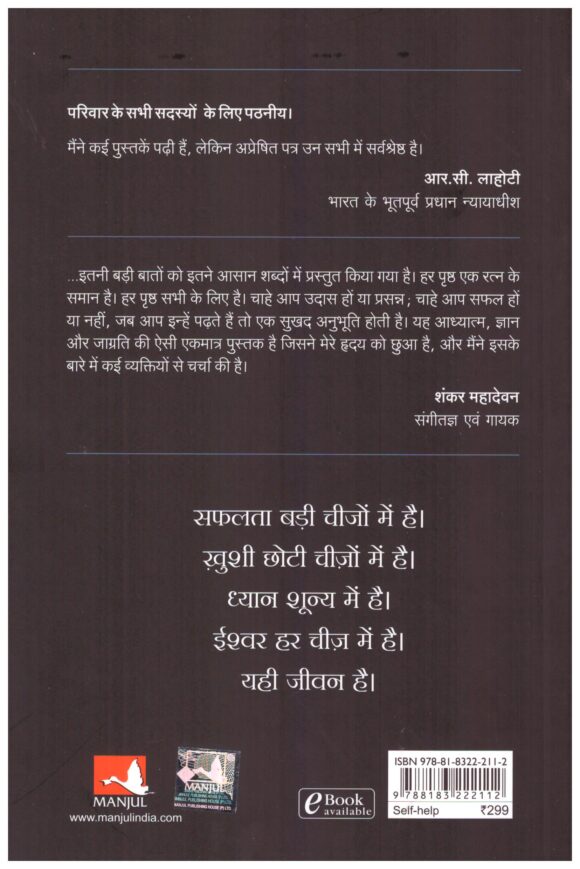 परिवार के सभी सदस्यों के लिए पठनीय।
मैंने कई पुस्तकें पढ़ी हैं, लेकिन अप्रेषित पत्र उन सभी में सर्वश्रेष्ठ है।
आर.सी. लाहोटी
भारत के भूतपूर्व प्रधान न्यायाधीश
...इतनी बड़ी बातों को इतने आसान शब्दों में प्रस्तुत किया गया है। हर पृष्ठ एक रत्न के
समान है। हर पृष्ठ सभी के लिए है। चाहे आप उदास हों या प्रसन्न ; चाहे आप सफल हों
या नहीं, जब आप इन्हें पढ़ते हैं तो एक सुखद अनुभूति होती है। यह आध्यात्म, ज्ञान
और जाग्रति की ऐसी एकमात्र पुस्तक है जिसने मेरे हृदय को छुआ है, और मैंने इसके
बारे में कई व्यक्तियों से चर्चा की है।
शंकर महादेवन
संगीतज्ञ एवं गायक
सफलता बड़ी चीजों में है।
ख़ुशी छोटी चीज़ों में है।
ध्यान शून्य में है।
ईश्वर हर चीज़ में है।
यही जीवन है।
MANJUL
www.manjulindia.com
MANJUL
MANJUL PUBLISHING HOUSE (P) LTD.
eBook
available
ISBN 978-81-8322-211-2
9 788183 222112
Self-help ₹299